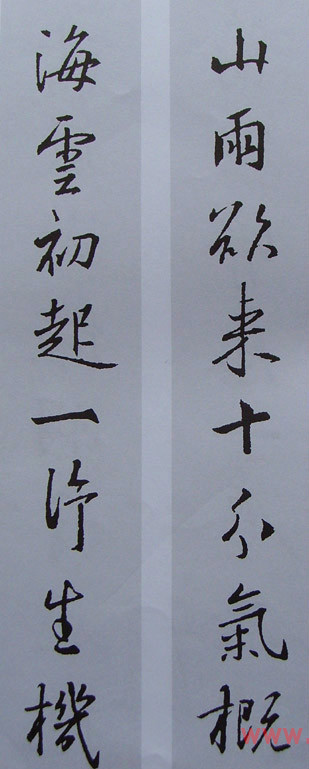 山雨欲来十分氣概
海雲初起一許生機
www.